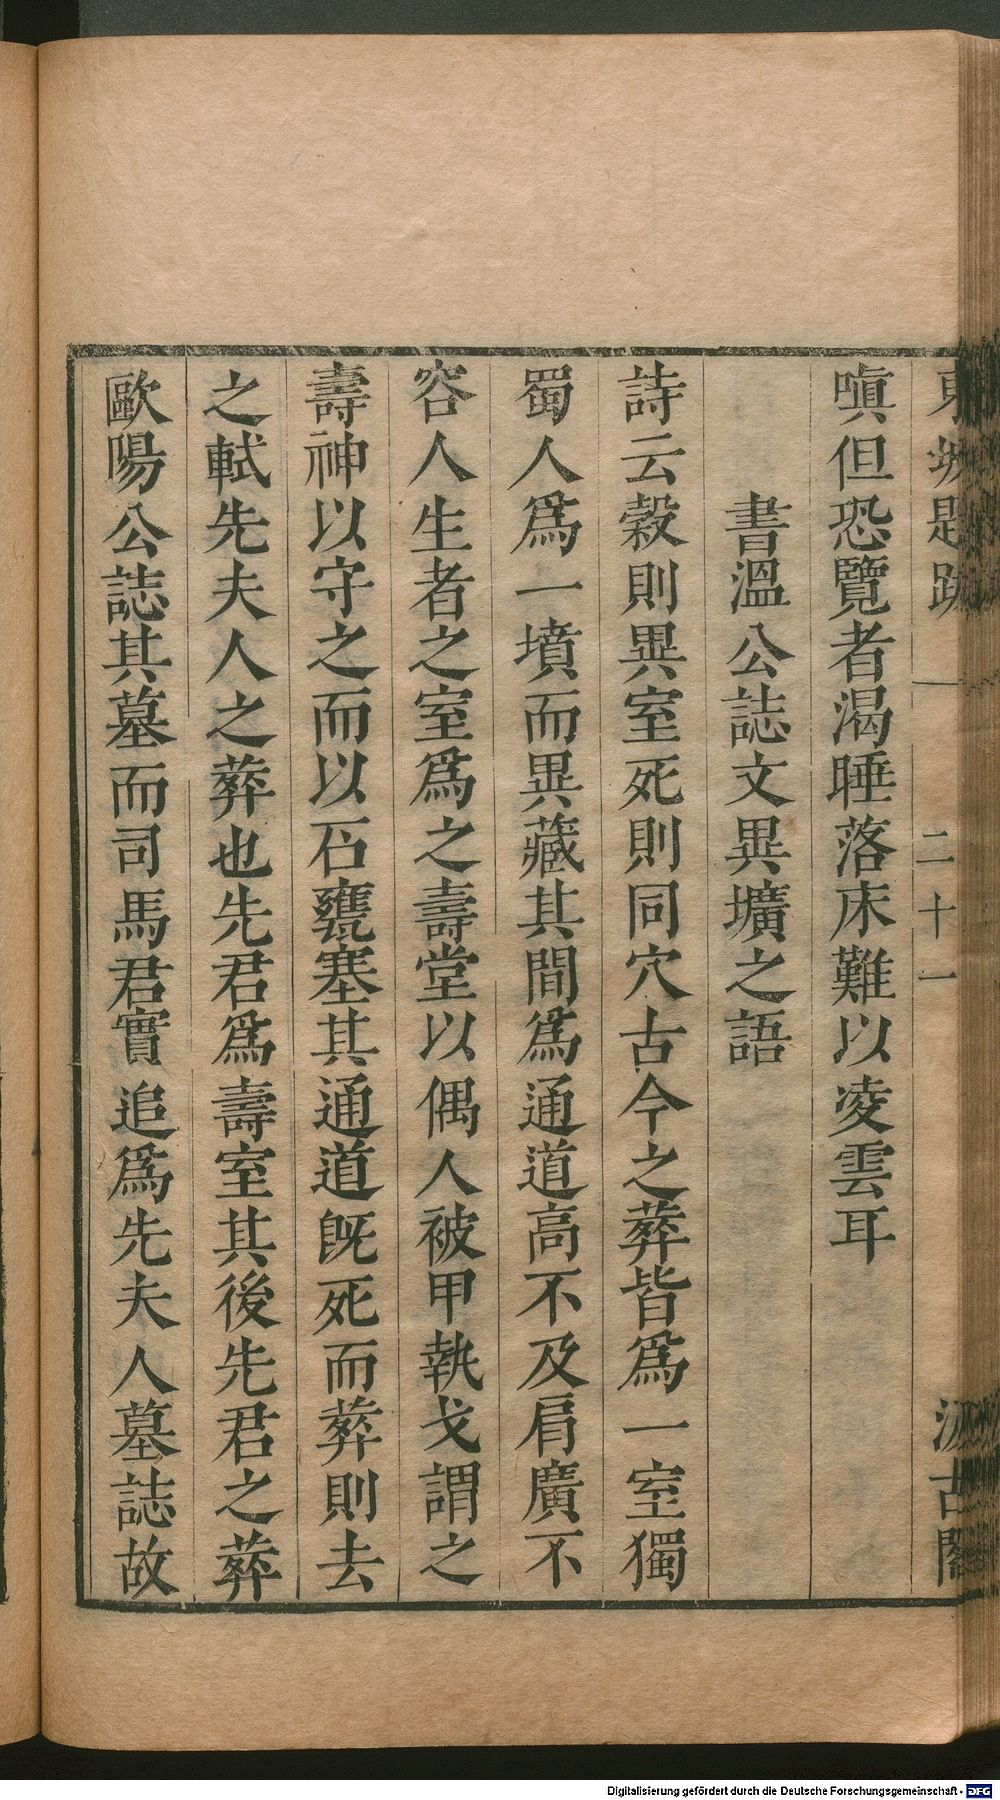 東坡題跋 一 二十一 汲古閣
嗔但恐覽者渴睡落床難以凌雲耳
書溫公誌文異壙之語
詩云榖則異室死則同穴古今之葬皆爲一室獨
蜀人爲一墳而異藏其間爲通道高不及肩廣不
容人生者之室爲之壽堂以偶人被甲執戈謂之
壽神以守之而以石甕塞其通道旣死而葬則去
之軾先夫人之葬也先君爲壽室其後先君之葬
歐陽公誌其墓而司馬君實追爲先夫人墓誌故
Digitalisierung gefördert durch die Deutsche Forschungsgemeinschaft - DFG